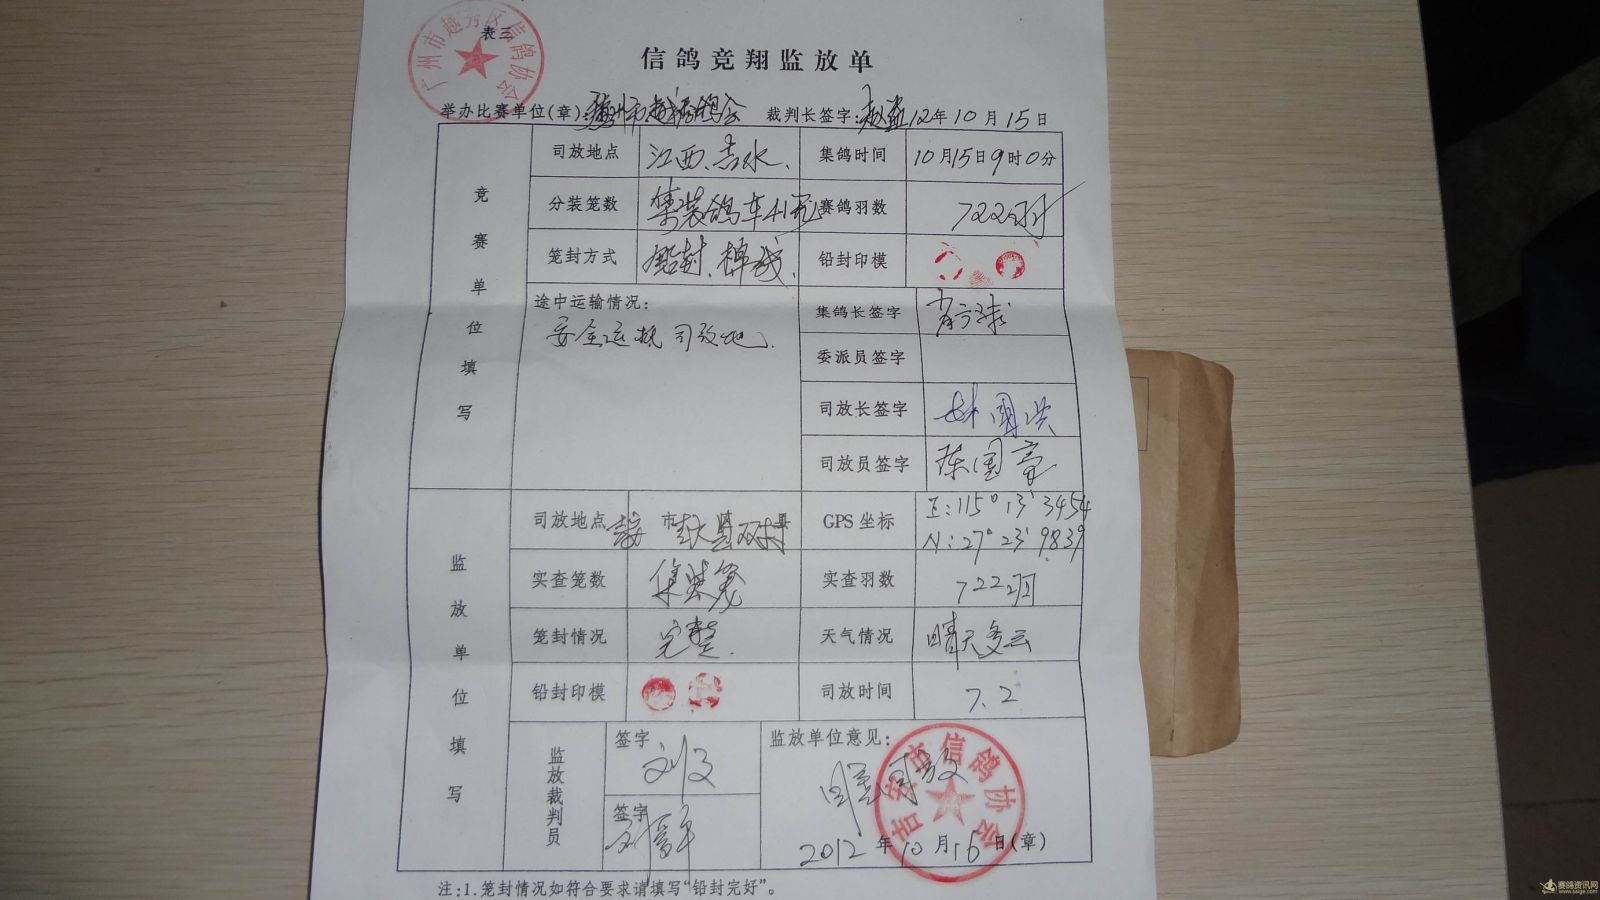 广州市越秀区信鸽协会
表三
信鸽竞翔监放单
举办比赛单位(章): 裁判长签字: 12年10月15日
竞赛单位填写
司放地点 江西、吉水. 集鸽时间 10月15日9时0分
分装笼数 集装鸽车 赛鸽羽数 722羽
笼封方式 铅封.棉线. 铅封印模
途中运输情况: 集鸽长签字
安全运抵司放地. 委派员签字
司放长签字 林国洪
司放员签字 陈国豪
监放单位填写
司放地点 市 县 GPS坐标 E:115°13′3454
N:27°23′9839
实查笼数 集装笼 实查羽数 722羽
笼封情况 完整. 天气情况 晴天多云
铅封印模 司放时间 7.2
监放裁判员 签字 监放单位意见:
签字 同意司放
吉安市信鸽协会
2012年10月16日(章)
注:1.笼封情况如符合要求请填写“铅封完好”。
赛鸽资讯网
www.saige.com